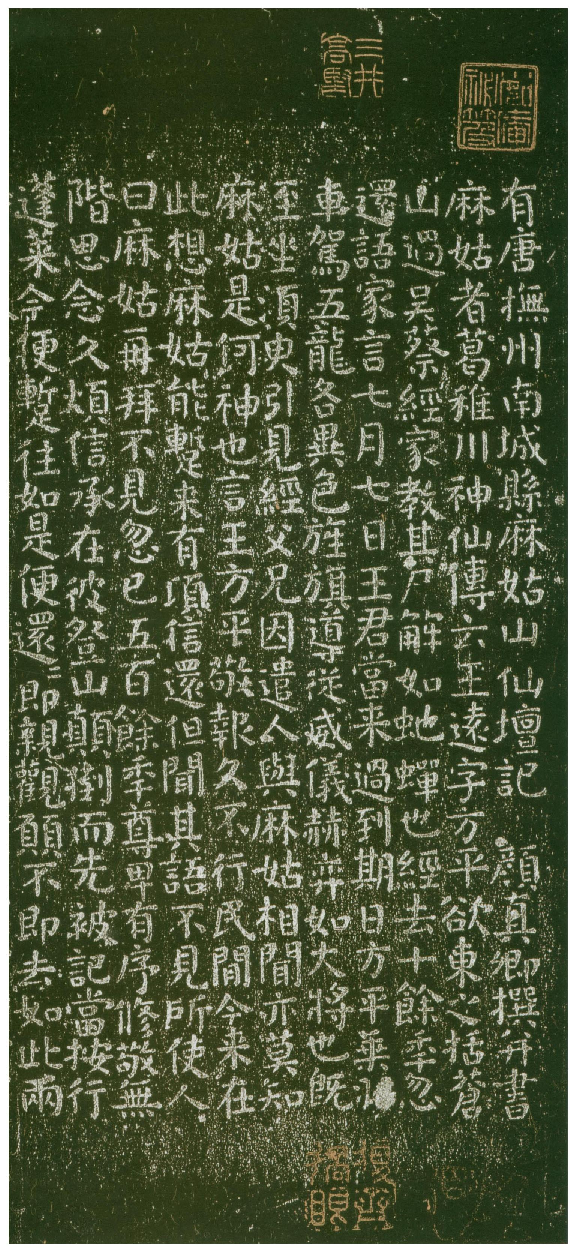 三井高堅
有唐撫州南城縣麻姑山仙壇記　顏真卿撰并書
麻姑者葛稚川神仙傳云王遠字方平欲東之括蒼
山過吳蔡經家教其尸解如虵蟬也經去十餘季忽
還語家言七月七日王君當来過到期日方平乗羽
車駕五龍各異色旌旗導從威儀赫弈如大將也既
至坐須臾引見經父兄因遣人與麻姑相聞亦莫知
麻姑是何神也言王方平敬報久不行民間今来在
此想麻姑能蹔来有頃信還但聞其語不見所使人
曰麻姑再拜不見忽已五百餘季尊卑有序修敬無
階思念久煩信承在彼登山顛倒而先被記當按行
蓬萊今便蹔往如是便還〻即親觀願不即去如此兩